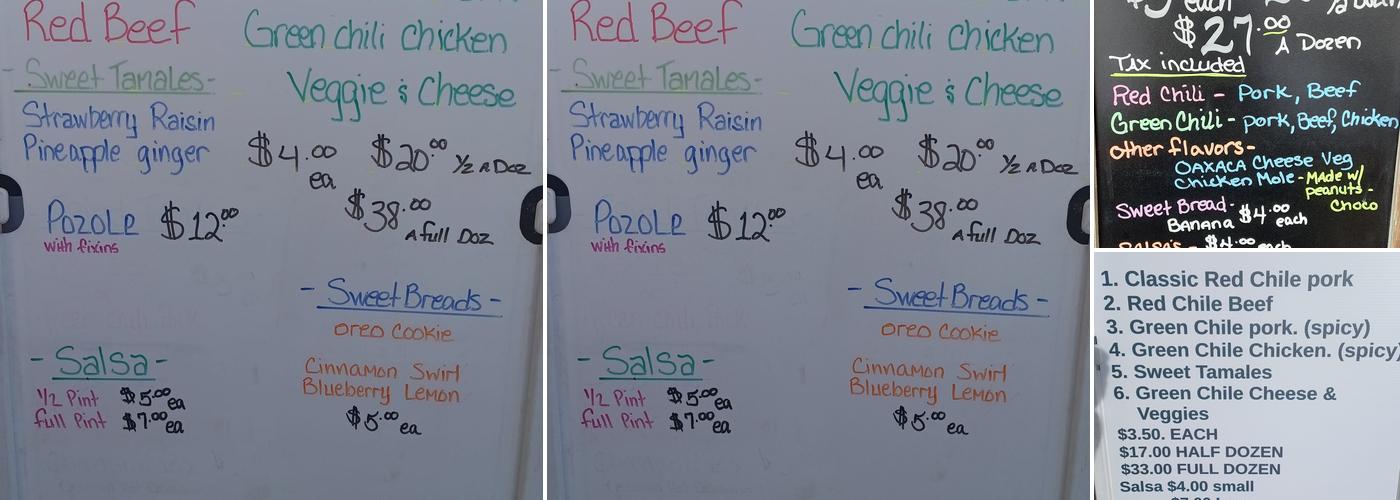 Red Beef
Green chili chicken
- Sweet Tamales -
Veggie & Cheese
Strawberry Raisin
Pineapple ginger
$4.00 ea
$20.00 1/2 A Doz
$38.00 A full Doz
Pozole $12.00
with fixins
- Sweet Breads -
oreo Cookie
Cinnamon Swirl
Blueberry Lemon
$5.00 ea
- Salsa -
1/2 Pint $5.00 ea
full Pint $7.00 ea
Red Beef
Green chili chicken
- Sweet Tamales -
Veggie & Cheese
Strawberry Raisin
Pineapple ginger
$4.00 ea
$20.00 1/2 A Doz
$38.00 A full Doz
Pozole $12.00
with fixins
- Sweet Breads -
oreo Cookie
Cinnamon Swirl
Blueberry Lemon
$5.00 ea
- Salsa -
1/2 Pint $5.00 ea
full Pint $7.00 ea
each
$27.00 A Dozen
Tax included
Red Chili - Pork, Beef
Green Chili - Pork, Beef, Chicken
other flavors -
OAXACA Cheese Veg
Chicken Mole - MAde w/
peanuts -
Choco
Sweet Bread - $4.00 each
BANANA
Salsa's - $4.00 each
1. Classic Red Chile pork
2. Red Chile Beef
3. Green Chile pork. (spicy)
4. Green Chile Chicken. (spicy)
5. Sweet Tamales
6. Green Chile Cheese &
Veggies
$3.50. EACH
$17.00 HALF DOZEN
$33.00 FULL DOZEN
Salsa $4.00 small